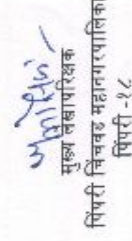 मुख्य लेखापरिक्षक
पिंपरी चिंचवड महानगरपालिका
पिंपरी -१८